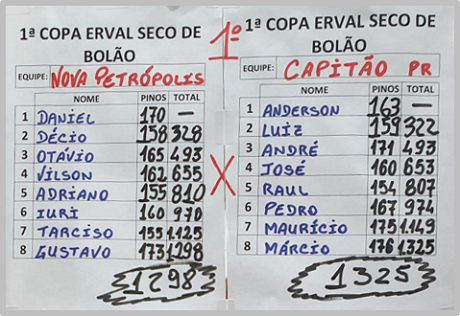 1ª COPA ERVAL SECO DE
BOLÃO
EQUIPE: NOVA PETRÓPOLIS
NOME PINOS TOTAL
1 DANIEL 170 —
2 DÉCIO 158 328
3 OTÁVIO 165 493
4 VILSON 162 655
5 ADRIANO 155 810
6 IURI 160 970
7 TARCISO 155 1.125
8 GUSTAVO 173 1.298
1298
1º
X
1ª COPA ERVAL SECO DE
BOLÃO
EQUIPE: CAPITÃO PR
NOME PINOS TOTAL
1 ANDERSON 163 —
2 LUIZ 159 322
3 ANDRÉ 171 493
4 JOSÉ 160 653
5 RAUL 154 807
6 PEDRO 167 974
7 MAURÍCIO 175 1.149
8 MÁRCIO 176 1.325
1325